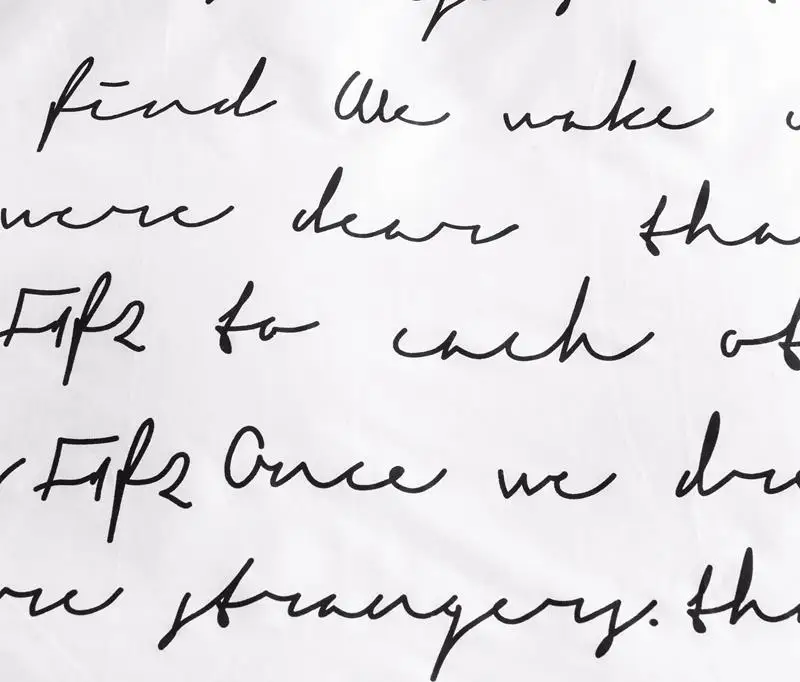 find We wake
were dear tha
F1f2 to each ot
F1f2 Once we dre
re strangers. tha